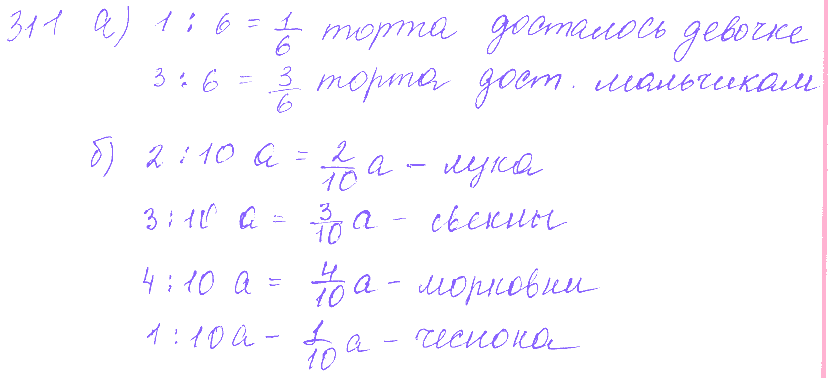 311 а) 1 : 6 = 1/6 торта досталось девочке
3 : 6 = 3/6 торта дост. мальчикам
б) 2 : 10 а = 2/10 а – лука
3 : 10 а = 3/10 а – свеклы
4 : 10 а = 4/10 а – морковки
1 : 10 а – 1/10 а – чеснока